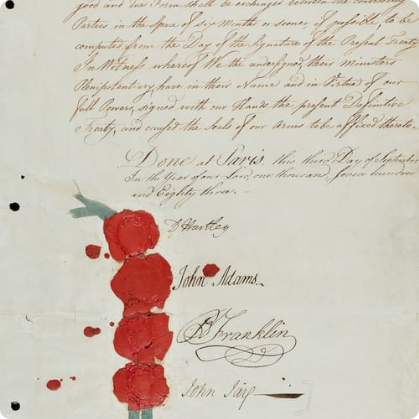 good and due Form shall be exchanged between the contracting
Parties in the Space of Six Months or sooner if possible to be
computed from the Day of the Signature of the Present Treaty.
In Witness whereof We the undersigned their Ministers
Plenipotentiary have in their Name and in Virtue of our
full Powers, signed with our Hands the present Definitive
Treaty, and caused the Seals of our Arms to be affixed thereto.
Done at Paris, this third Day of September
In the Year of our Lord, one thousand, seven hundred
and Eighty three.—
D Hartley
John Adams.
B Franklin
John Jay